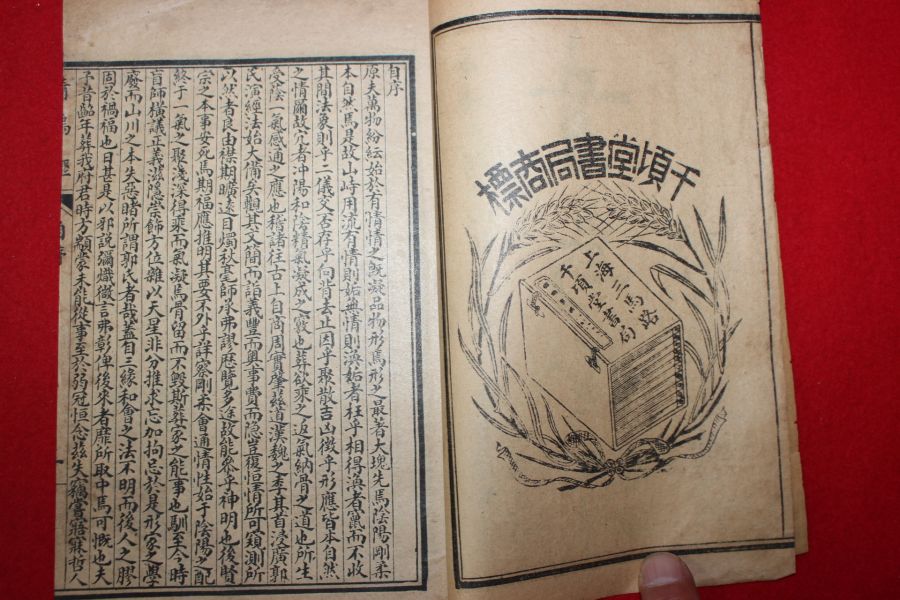 千頃堂書局商標
上海三馬路
千頃堂書局
自序
原夫萬物紛紜始於有情情之既凝品物形焉形之最著大塊先焉陰陽剛柔
本自然焉是故山峙用流有情則姤無情則渙姤者在乎相得渙者窵而不收
其間法象則乎二儀交否存乎向背去止因乎聚散吉凶徵乎形應皆本自然
之情爾故穴者沖陽和陰精氣凝成之藪也葬欲乘之返氣納骨之道也所生
受蔭一氣感通之應也稽諸往古上自商周實肇茲道漢魏之季其旨浸廣郭
氏演經法始大備矣觀其文簡而詣義豐而奧事賾而隱豈復恒情所可窺測所
以然者良由標期曠遠目燭秋毫師承弗謬歷覽多途故能參乎神明也後賢
宗之本事安死焉期福應推明其要不外乎詳察剛柔會通情性始于陰陽之配
終于一氣之聚淺深得乘而氣凝焉骨留而不毀斯葬家之能事也馴至今時
盲師橫議正義隱崇飾方位雜以天星非分推求忘加拘忌於是形家之學
廢而山川之本失惡睹所謂郭氏者哉蓋自三緣和會之法不明而後人之膠
固於禍福也日甚是以邪說彌熾微言弗彰俾後來者靡所取中焉可慨也夫
予昔齠年葬我府君時方顓蒙未能從事至於弱冠恒念茲失竊嘗寤寐哲人